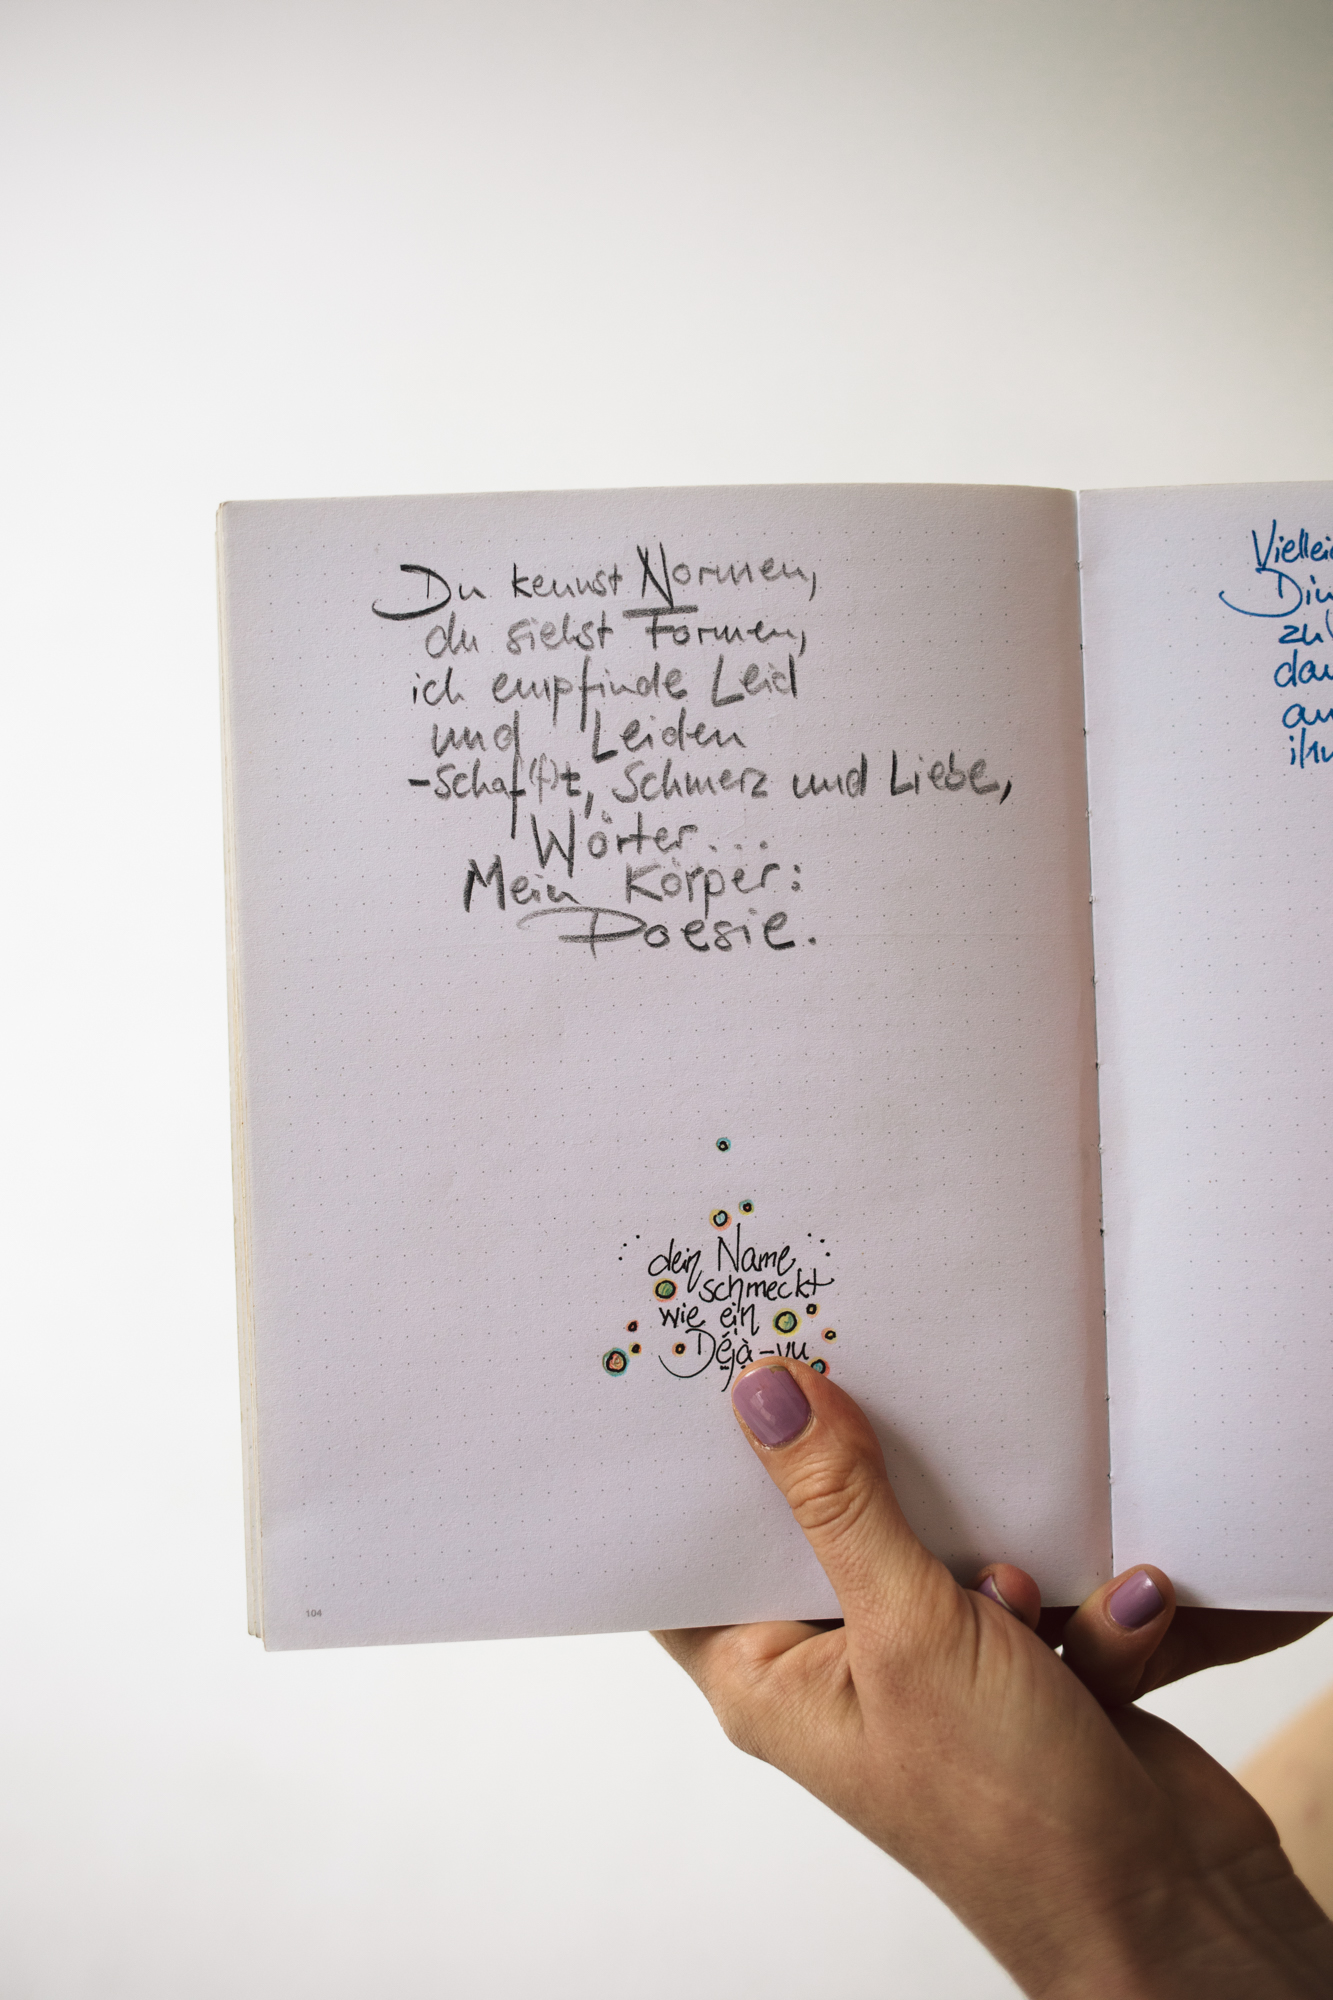 Du kennst Normen,
du siehst Formen,
ich empfinde Leid
und Leiden
-schaf(f)t, Schmerz und Liebe,
Wörter...
Mein Körper:
Poesie.
dein Name
schmeckt
wie ein
Déjà-vu
104
zu